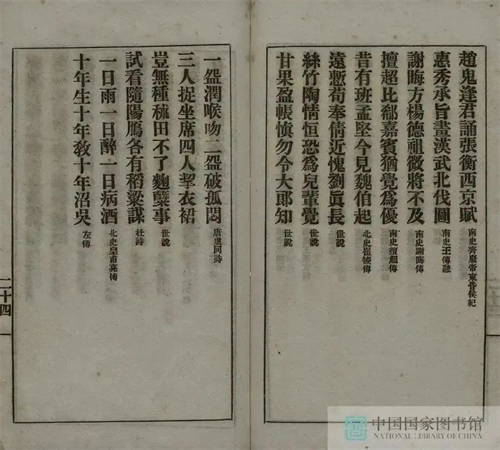 趙鬼逢君誦張衡西京賦 南史齊廢帝東昏侯紀
惠秀承旨畫漢武北伐圖 南史王傳融
謝晦方楊德祖微將不及 南史謝晦傳
擅超比郗嘉賓猶覺爲優 南史擅超傳
昔有班孟堅今見魏伯起 北史崔㥄傳
遠慙荀奉倩近愧劉眞長 世說
絲竹陶情恒恐爲兒輩覺 世說
甘果盈帳愼勿令大郞知 世說
一盌潤喉吻二盌破孤悶 唐盧同詩
三人捉坐席四人挈衣裙
豈無種秫田不了麴糱事 世說
試看隨陽鴈各有稻粱謀 杜詩
一日雨一日醉一日病酒 北史皇甫亮傳
十年生十年教十年沼吳 左傳
二十四
中国国家图书馆
NATIONAL LIBRARY OF CHINA